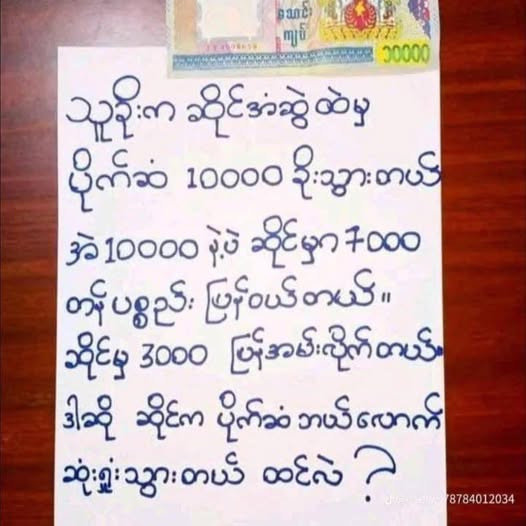 သောင်း
ကျပ်
10000
သူခိုးက ဆိုင်အံဆွဲထဲမှ
ပိုက်ဆံ 10000 ခိုးသွားတယ်
အဲ 10000 နဲ့ပဲ ဆိုင်မှာ 7000
တန်ပစ္စည်း ပြန်ဝယ်တယ်။
ဆိုင်မှ 3000 ပြန်အမ်းလိုက်တယ်။
ဒါဆို ဆိုင်က ပိုက်ဆံ ဘယ်လောက်
ဆုံးရှုံးသွားတယ် ထင်လဲ ?
78784012034